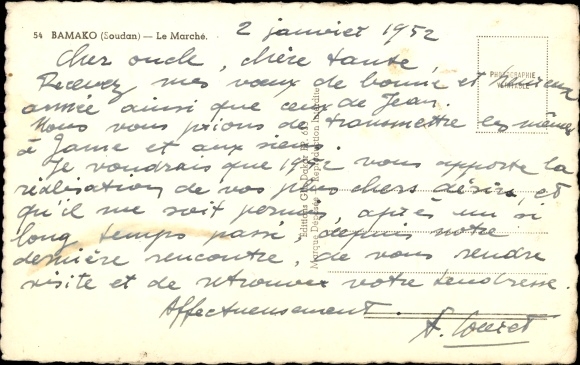 54 BAMAKO (Soudan) — Le Marché.
2 janvier 1952
PHOTOGRAPHIE
VÉRITABLE
Cher oncle, chère tante,
Recevez mes vœux de bonne et heureuse
année ainsi que ceux de Jean.
Nous vous prions de transmettre les mêmes
à Jame et aux siens.
Je voudrais que 1952 vous apporte la
réalisation de vos plus chers désirs, et
qu'il me soit permis, après un si
long temps passé depuis notre
dernière rencontre, de vous rendre
visite et de retrouver votre tendresse.
Affectueusement
A.
Editions Dakar
Marque Déposée - Reproduction interdite